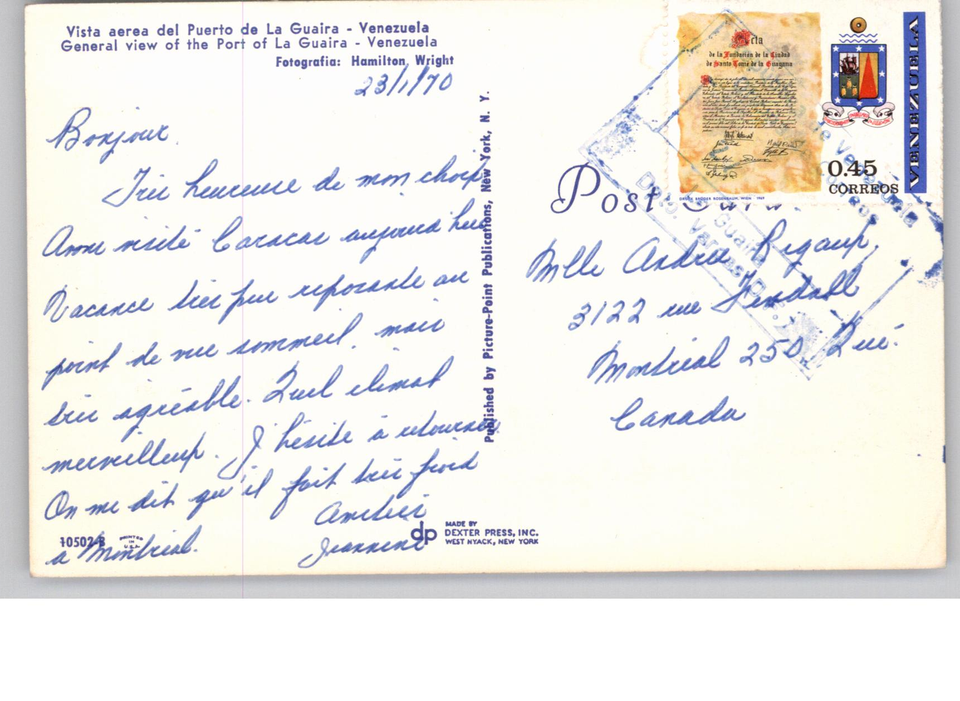 Vista aerea del Puerto de La Guaira - Venezuela
General view of the Port of La Guaira - Venezuela
Fotografia: Hamilton Wright
23/1/70
Bonjour
Très heureuse de mon choix
Avons visité Caracas aujourd'hui
Vacance très peu reposante au
point de vue sommeil, mais
très agréable. Quel climat
merveilleux. J'hésite à retourner
On me dit qu'il fait très froid
à Montréal.
Amitiés
Jeannine
10502-B
PRINTED
IN
U.S.A.
dp
MADE BY
DEXTER PRESS, INC.
WEST NYACK, NEW YORK
Published by Picture-Point Publications, New York, N. Y.
Post Card
Mlle Andrée
3122 rue Kendall
Montréal 250, Qué.
Canada
Acta
de la Fundación de la Ciudad
de Santo Tomé de la Guayana
0.45
CORREOS
VENEZUELA
La Guaira
Dto. Vargas